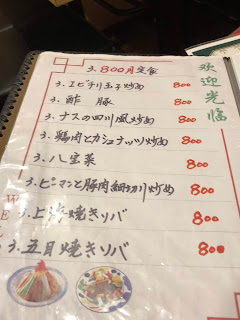 欢迎光临
3. 800円定食
3. エビチリ玉子炒め 800
3. 酢豚 800
3. ナスの四川風炒め 800
3. 鶏肉とカシュナッツ炒め 800
3. 八宝菜 800
3. ピーマンと豚肉細切り炒め 800
3. 上海焼きソバ 800
3. 五目焼きソバ 800